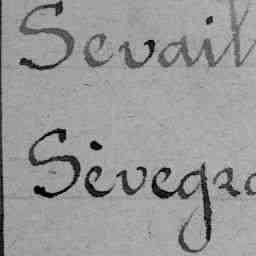 Sevail
Sévegra